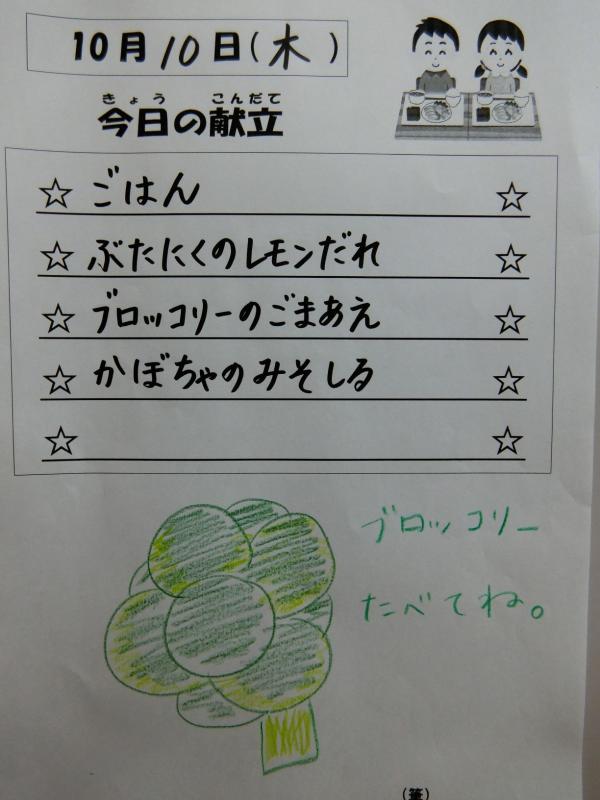 10月10日(木)
きょう こんだて
今日の献立
☆ ごはん ☆
☆ ぶたにくのレモンだれ ☆
☆ ブロッコリーのごまあえ ☆
☆ かぼちゃのみそしる ☆
☆ ☆
ブロッコリー
たべてね。
(筆)